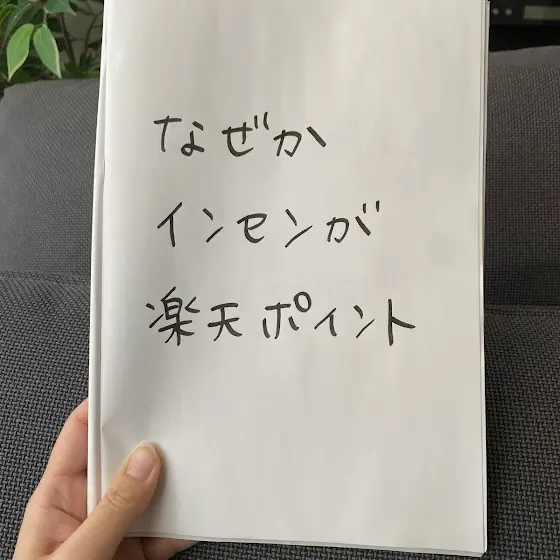 なぜか
インセンが
楽天ポイント